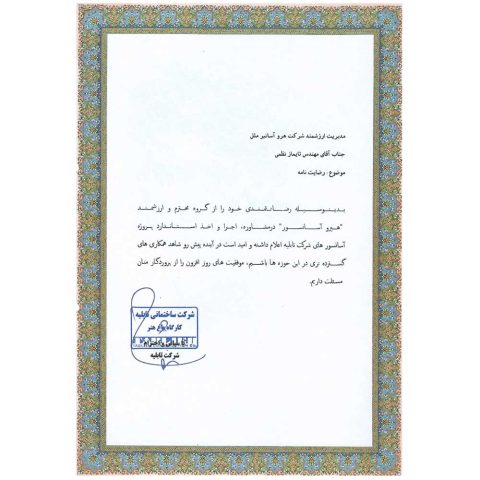 مدیریت ارزشمند شرکت هرو آسانبر ملل
جناب آقای مهندس تایماز نظمی
موضوع: رضایت نامه
بدینوسیله رضایتمندی خود را از گروه محترم و ارزشمند
"هیرو آسانسور" درمشاوره، اجرا و اخذ استاندارد پروژه
آسانسور های شرکت تابلیه اعلام داشته و امید است در آینده پیش رو شاهد همکاری های
گسترده تری در این حوزه ها باشیم، موفقیت های روز افزون را از پروردگار منان
مسئلت داریم.
شرکت ساختمانی تابلیه
کارگاه باغ هنر
شرکت تابلیه